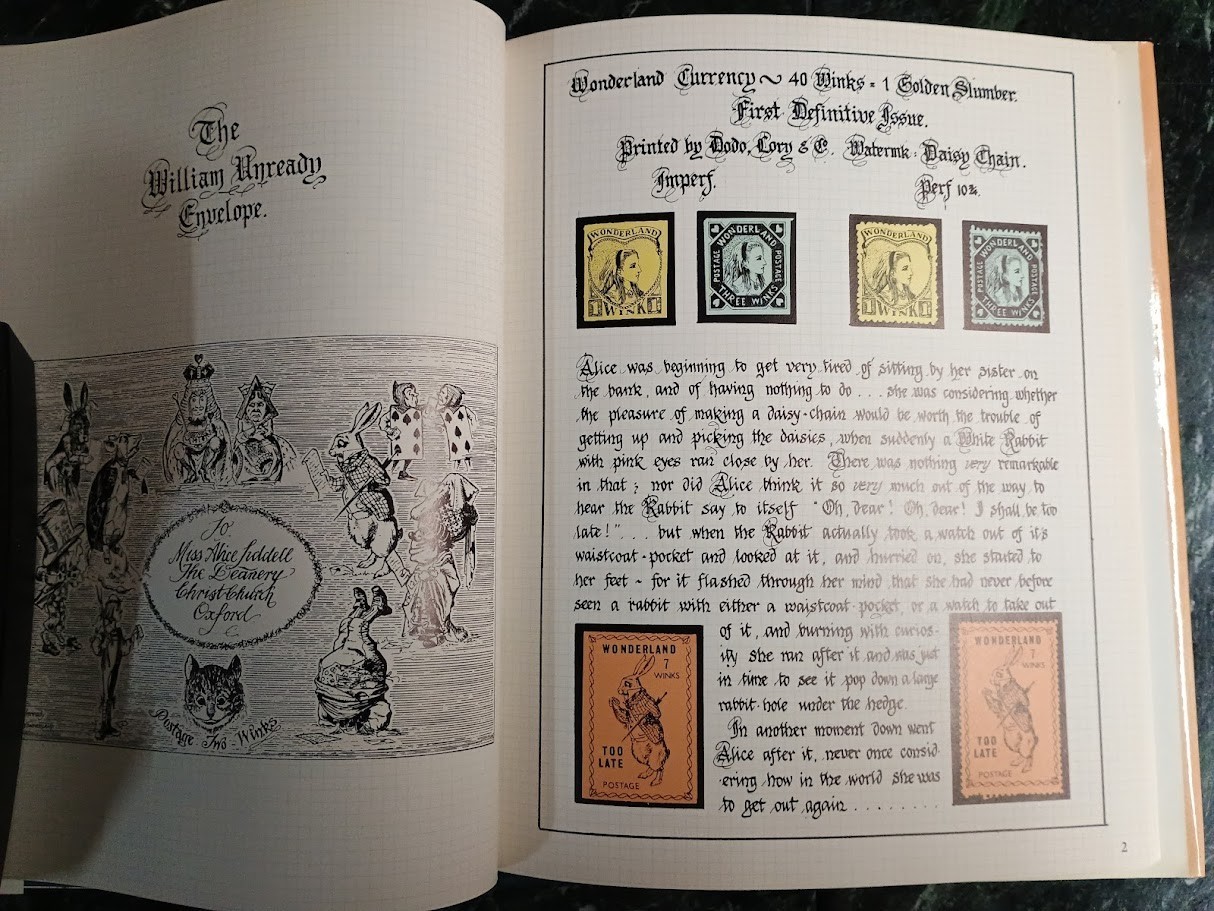 The
William Unready
Envelope.
To:
Miss Alice Liddell
The Deanery
Christ Church
Oxford
Postage Two Winks
Wonderland Currency ~ 40 Winks = 1 Golden Slumber.
First Definitive Issue.
Printed by Dodo, Lory & E. Watermk: Daisy Chain.
Imperf.
Perf 10¾.
WONDERLAND
1 WINK 1
WONDERLAND
POSTAGE
POSTAGE
THREE WINKS
WONDERLAND
1 WINK 1
WONDERLAND
POSTAGE
POSTAGE
THREE WINKS
Alice was beginning to get very tired of sitting by her sister on
the bank, and of having nothing to do . . . she was considering whether
the pleasure of making a daisy-chain would be worth the trouble of
getting up and picking the daisies, when suddenly a White Rabbit
with pink eyes ran close by her. There was nothing very remarkable
in that ; nor did Alice think it so very much out of the way to
hear the Rabbit say to itself "Oh, dear! Oh, dear! I shall be too
late!" . . . but when the Rabbit actually took a watch out of it's
waistcoat-pocket and looked at it, and hurried on, she started to
her feet - for it flashed through her mind that she had never before
seen a rabbit with either a waistcoat-pocket, or a watch to take out
of it, and burning with curios-
ity she ran after it and was just
in time to see it pop down a large
rabbit-hole under the hedge.
In another moment down went
Alice after it, never once consid-
ering how in the world she was
to get out again . . . . . . . .
WONDERLAND
7
WINKS
TOO
LATE
POSTAGE
WONDERLAND
7
WINKS
TOO
LATE
POSTAGE
2